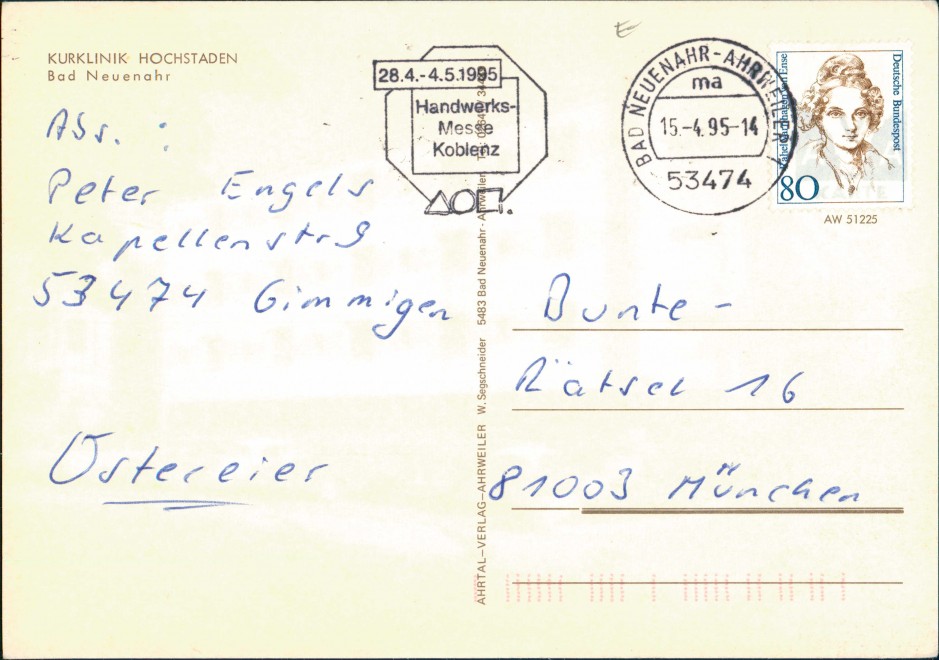 KURKLINIK HOCHSTADEN
Bad Neuenahr
28.4.-4.5.1995
Handwerks-
Messe
Koblenz
BAD NEUENAHR-AHRWEILER
ma
15.-4.95-14
53474
Deutsche Bundespost
80
AW 51225
Abs. :
Peter Engels
Kapellenstr 9
53474 Gimmigen
Ostereier
AHRTAL-VERLAG-AHRWEILER W. Segschneider 5483 Bad Neuenahr-Ahrweiler
Bunte-
Rätsel 16
81003 München